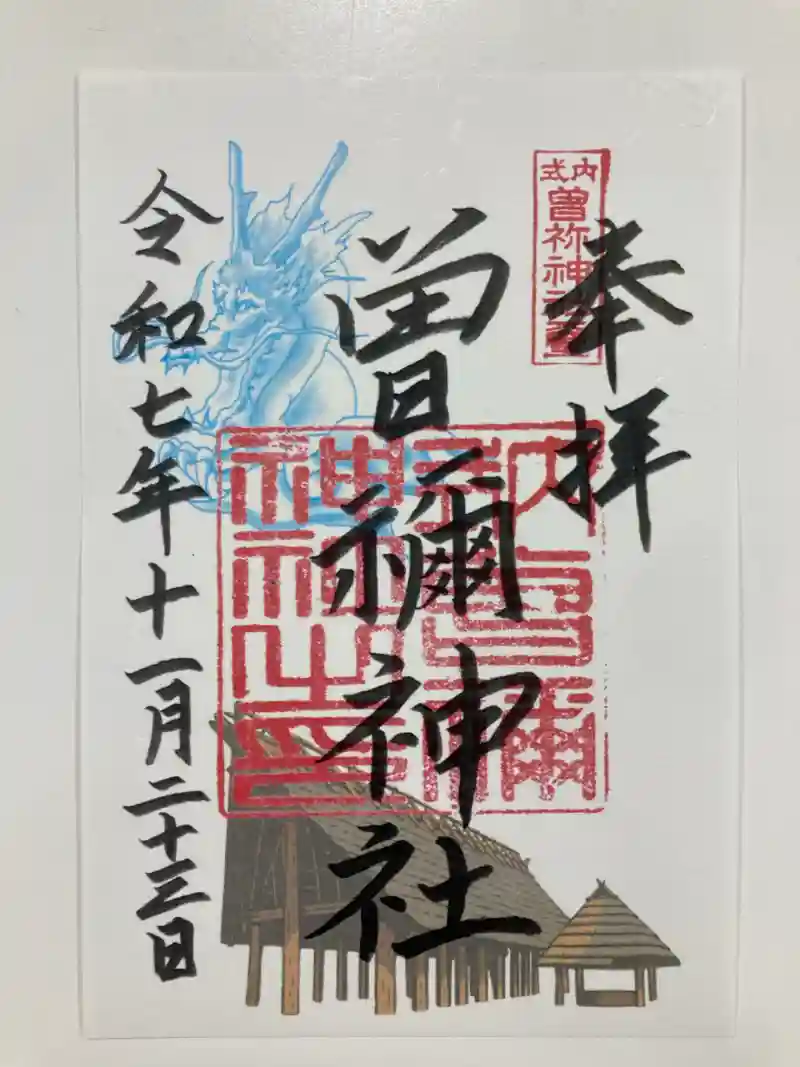 奉拝
式内
曽祢神社
曽禰神社
式内曽禰神社之印
令和七年十一月二十三日